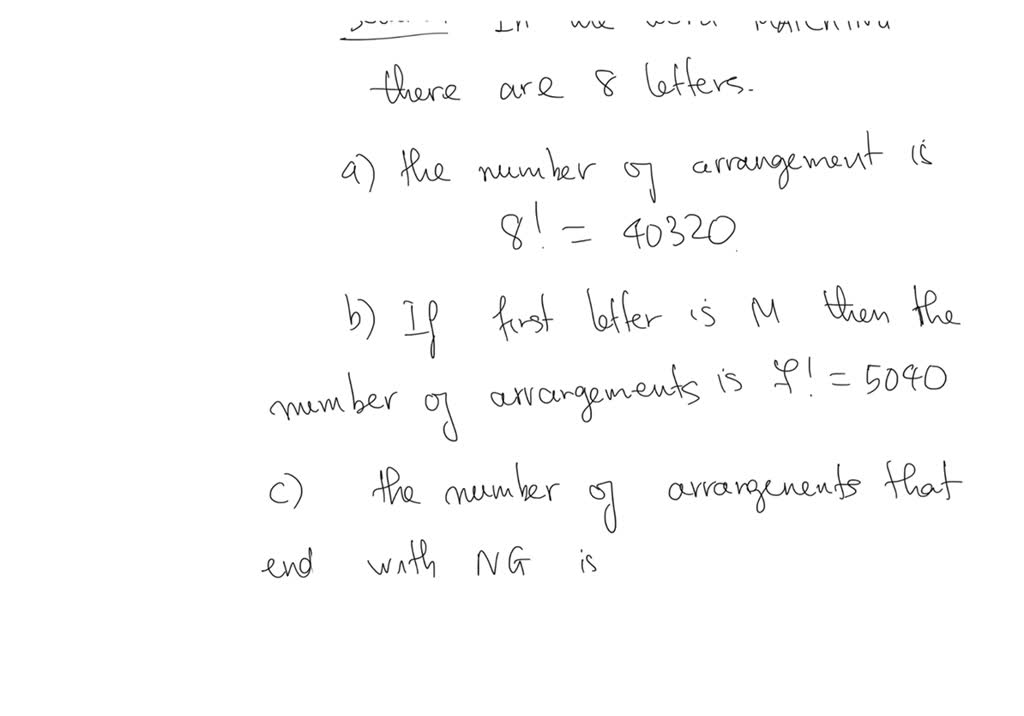 In the word MATCHING
there are 8 letters.
a) the number of arrangement is
8! = 40320
b) If first letter is M then the
number of arrangements is 7! = 5040
c) the number of arrangements that
end with NG is